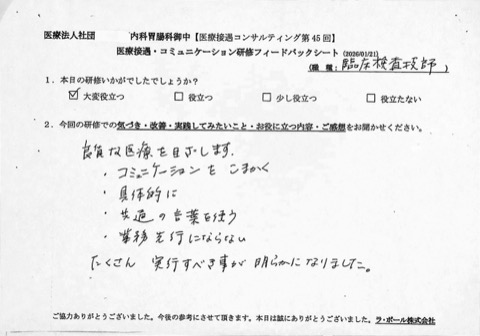 医療法人社団　　　内科胃腸科御中【医療接遇コンサルティング第45回】
医療接遇・コミュニケーション研修フィードバックシート (2026/01/21)
(職 種: 臨床検査技師 )
1．本日の研修いかがでしたでしょうか？
☑ 大変役立つ　□ 役立つ　□ 少し役立つ　□ 役立たない
2．今回の研修での気づき・改善・実践してみたいこと・お役に立つ内容・ご感想をお聞かせください。
良質な医療を目ざします。
・コミュニケーションをこまかく
・具体的に
・共通の言葉を使う
・業務先行にならない
たくさん 実行すべき事が明らかになりました。
ご協力ありがとうございました。今後の参考にさせて頂きます。本日は誠にありがとうございました。ラ・ポール株式会社